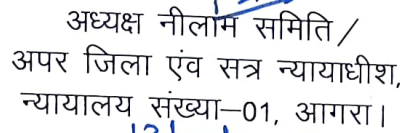 अध्यक्ष नीलाम समिति /
अपर जिला एंव सत्र न्यायाधीश,
न्यायालय संख्या–01, आगरा।